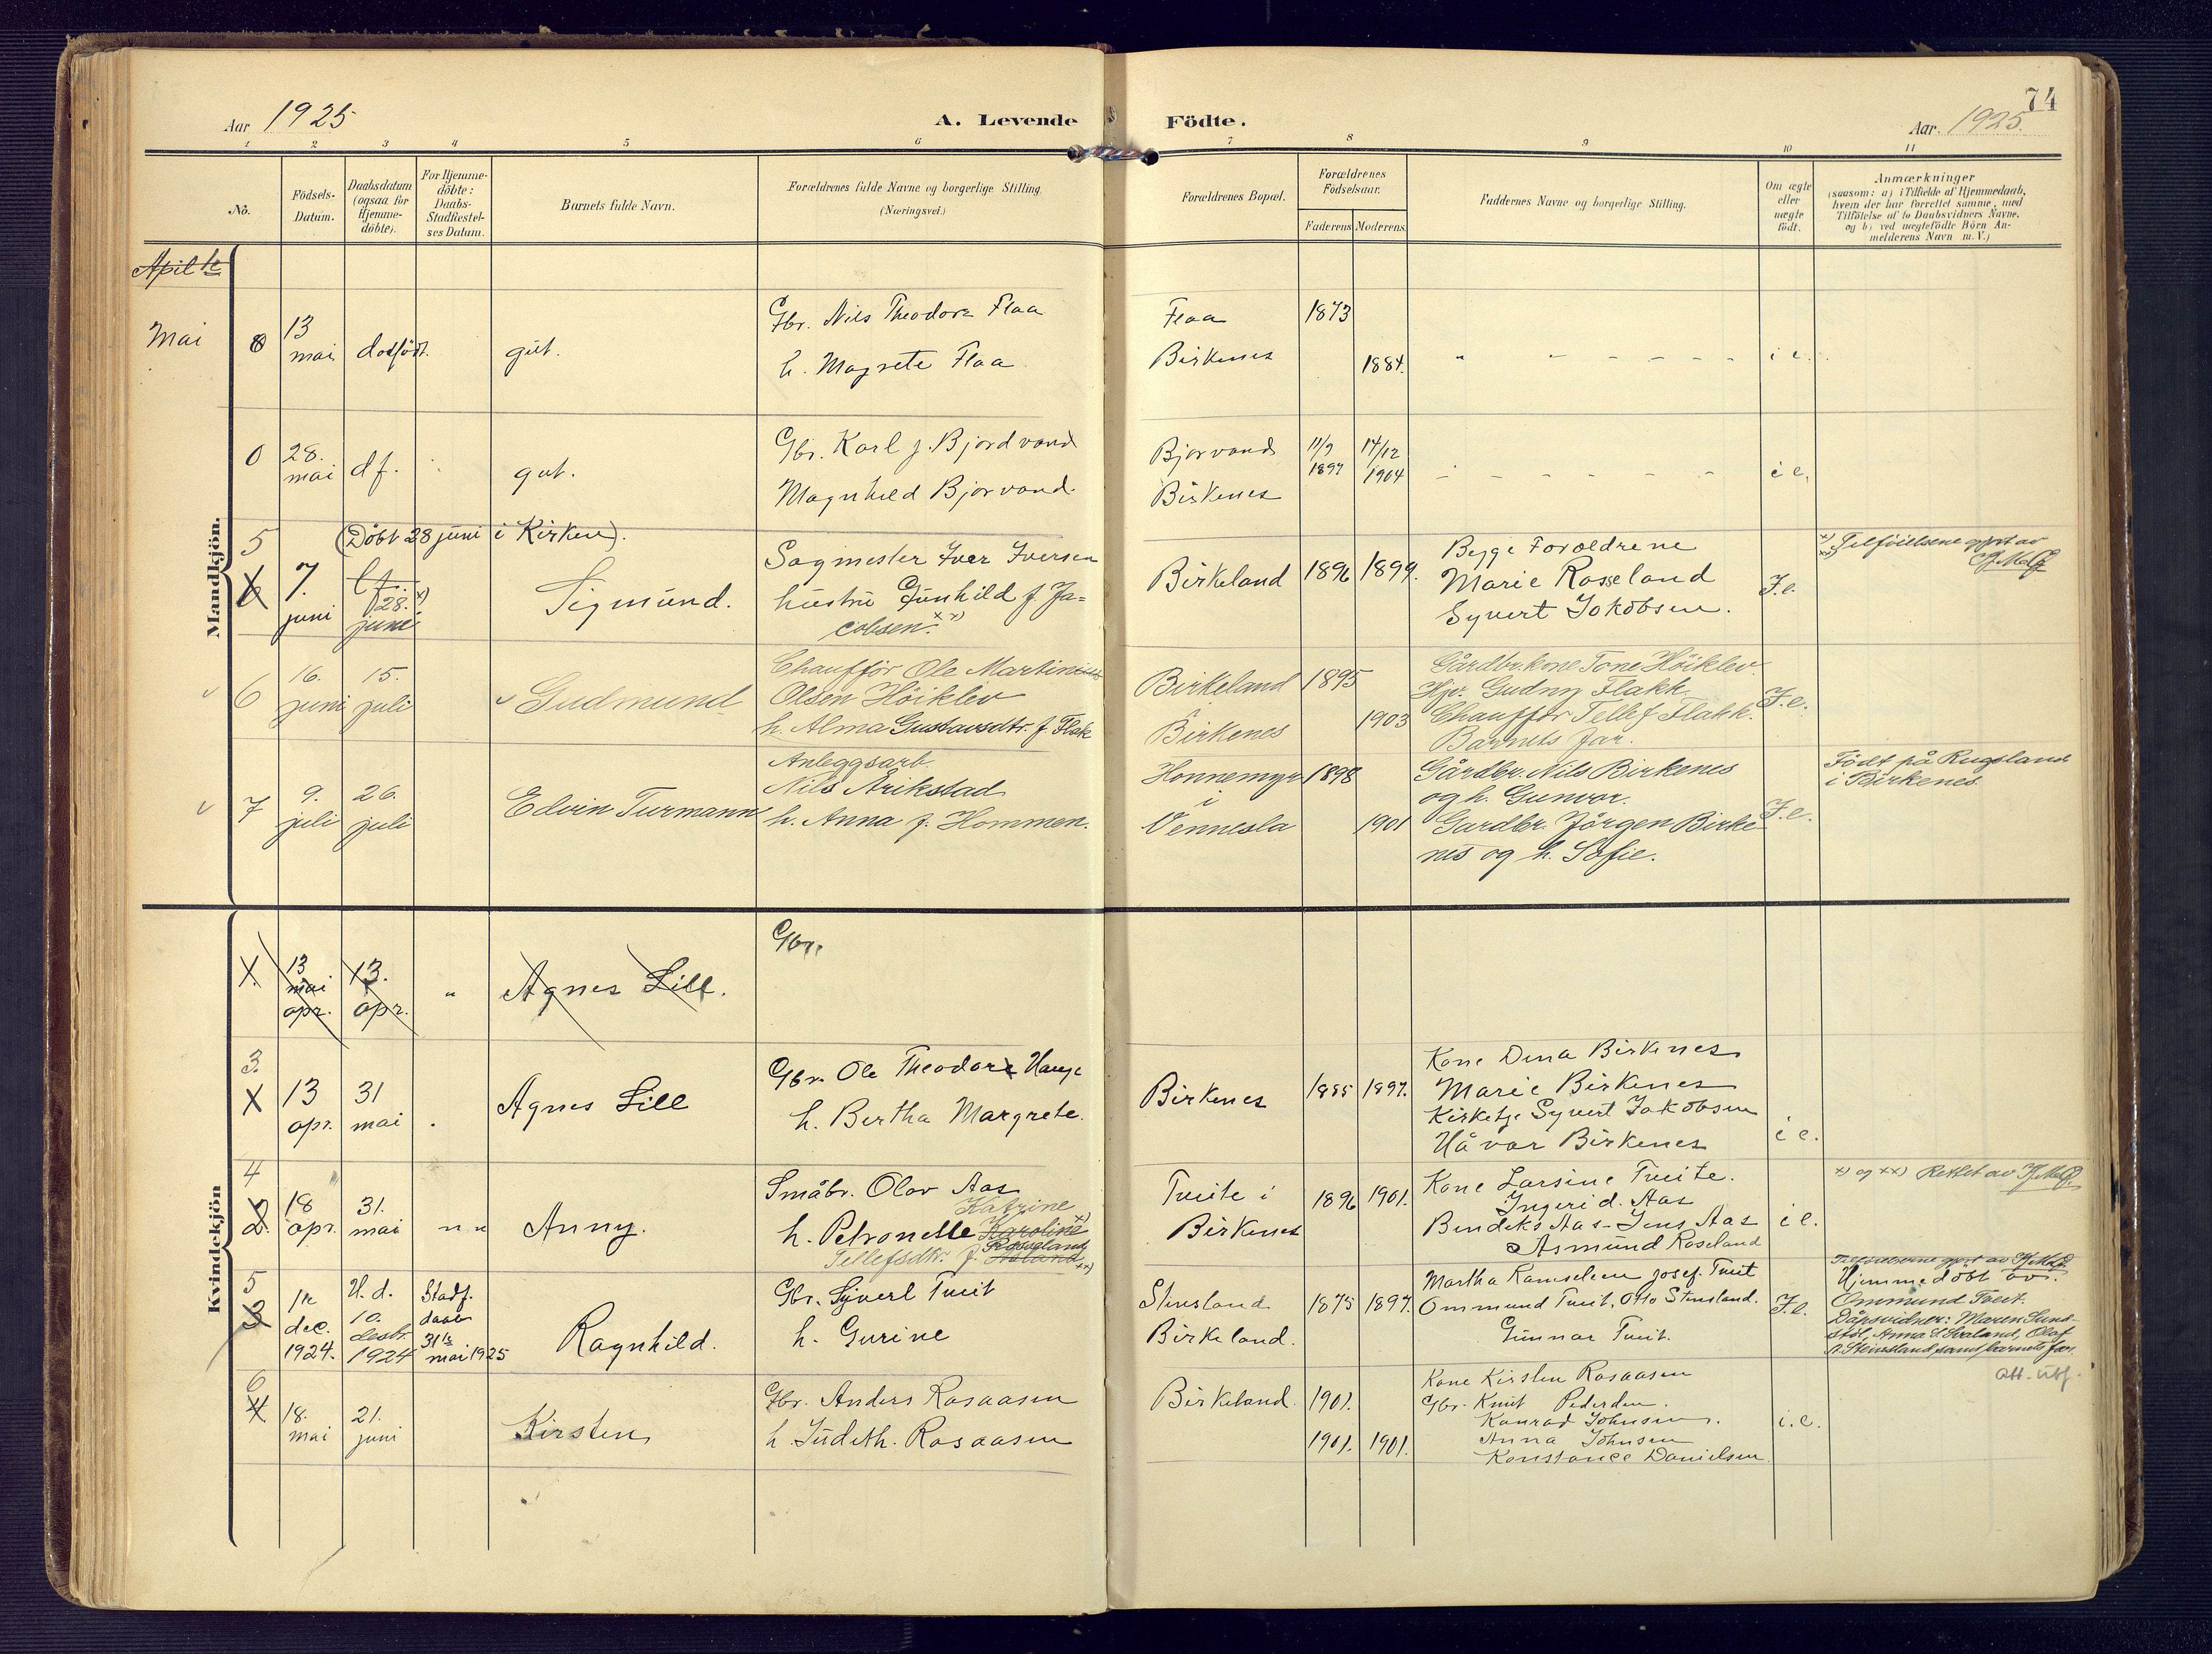 74
Aar 1925
A. Levende
Födte.
Aar. 1925.
1 2 3 4 5 6 7 8 9 10 11
No.
Födsels-
Datum.
Daabsdatum
(ogsaa for
Hjemme-
döbte).
For Hjemme-
döbte:
Daabs-
Stadfæstel-
ses Datum.
Barnets fulde Navn.
Forældrenes fulde Navne og borgerlige Stilling.
(Næringsvei.)
Forældrenes Bopæl.
Forældrenes
Födselsaar.
Faderens Moderens
Faddernes Navne og borgerlige Stilling.
Om ægte
eller
uægte
födt.
Anmærkninger
(saasom: a) i Tilfælde af Hjemmedaab,
hvem der har forrettet samme, med
Tilföielse af to Daabsvidners Navne.
og b) ved uægtefödte Börn An-
melderens Navn m. V.)
Mandkjön.
Mai
13
mai
dødfødt.
gut.
Gbr. Nils Theodor Flaa
h. Magrete Flaa
Flaa
Birkenes
1873
1884.
i e.
0
28.
mai
df.
gut.
Gbr. Karl J. Bjordvand
Magnhild Bjorvand.
Bjorvand
Birkenes
11/9
1897
14/12
1904
i e.
5
(Döbt 28 juni i Kirken).
7.
juni
28. x)
juni
Sigmund.
Sagmester Iver Iversen
hustru Gunhild f. Ja=
cobsen. xx)
Birkeland
1896
1899.
Begge Foroeldrene
Marie Rosseland
Syvert Jokobsen.
F.e.
x)
xx) Tilföielsene gjort av
6
16.
juni
15.
juli
Gudmund
Chaufför Ole Martinius
Olsen Höiklev
h. Alma Gustavsdtr. f. Flak
Birkeland
i
Birkenes
1895
1903
Gårdbr.kone Tone Höiklev.
Gudny Flakk.
Chaufför Tellef Flakk.
Barnets far.
F.e.
7
9.
juli
26.
juli
Edvin Turmann
Anleggsarb.
Nils Årikstad
h. Anna f. Hommen.
Honnemyr
i
Vennesla
1898
1901
Gårdbr. Nils Birkenes
og h. Gunvor.
Gardbr. Jörgen Birke-
nes og h. Sofie.
F.e.
Födt på Rugsland
i Birkenes.
Kvindekjön
13
mai
apr.
13.
apr.
"
Agnes Lill.
Gbr.
3.
13
apr.
31
mai
Agnes Lill
Gbr. Ole Theodor Hauge
h. Bertha Margrete.
Birkenes
1885
1897.
Kone Dina Birkenes
Marie Birkenes
Syvert Jakobsen
Håvar Birkenes
i e.
4
2.
18
apr.
31.
mai
Anny.
Småbr. Olav Aas
Katrine
h. Petronelle Karoline x)
Rosseland
Tellefsdtr. f. xx)
Tveite i
Birkenes
1896
1901.
Kone Larsine Tveite.
Ingerid. Aas
Bendiks Aas - Jens Aas
Asmund Roseland
i e.
x) og xx) Rettet av
5
3
dec.
1924.
H. d.
10.
desbr.
1924
Stadf.
daab
31te
mai 1925
Ragnhild.
Gbr. Syvert Tveit
h. Gurine
Stensland
Birkeland.
1875
1897.
Martha Josef. Tveit
Ommund Tveit, Otto Stensland.
Gunnar Tveit.
F.e.
Tilföielserne gjort av
Hjemmedöbt av.
Ommund Tveit.
Dåpsvidner: Maren Sund-
stöl, Anna Olaf
Steinsland samt barnets far.
att. utf.
6
4
18.
mai
21.
juni
Kirsten
Gbr. Anders Rosaasen
h Judith. Rosaasen
Birkeland.
1901.
1901. 1901.
Kone Kirsten Rosaasen
Gbr. Knut Pedersen.
Konrad Johnsen.
Anna Johnsen
Konstance Danielsen
i.e.